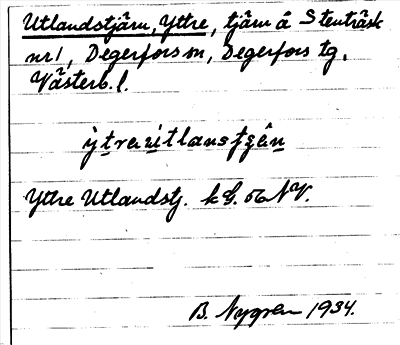 Utlandstjärn, Yttre, tjärn å Stenträsk
nr 1, Degerfors sn, Degerfors tg,
Västerb. l.
Yttre Utlandstj. k G. 56 NV.
B. Nygren 1934.